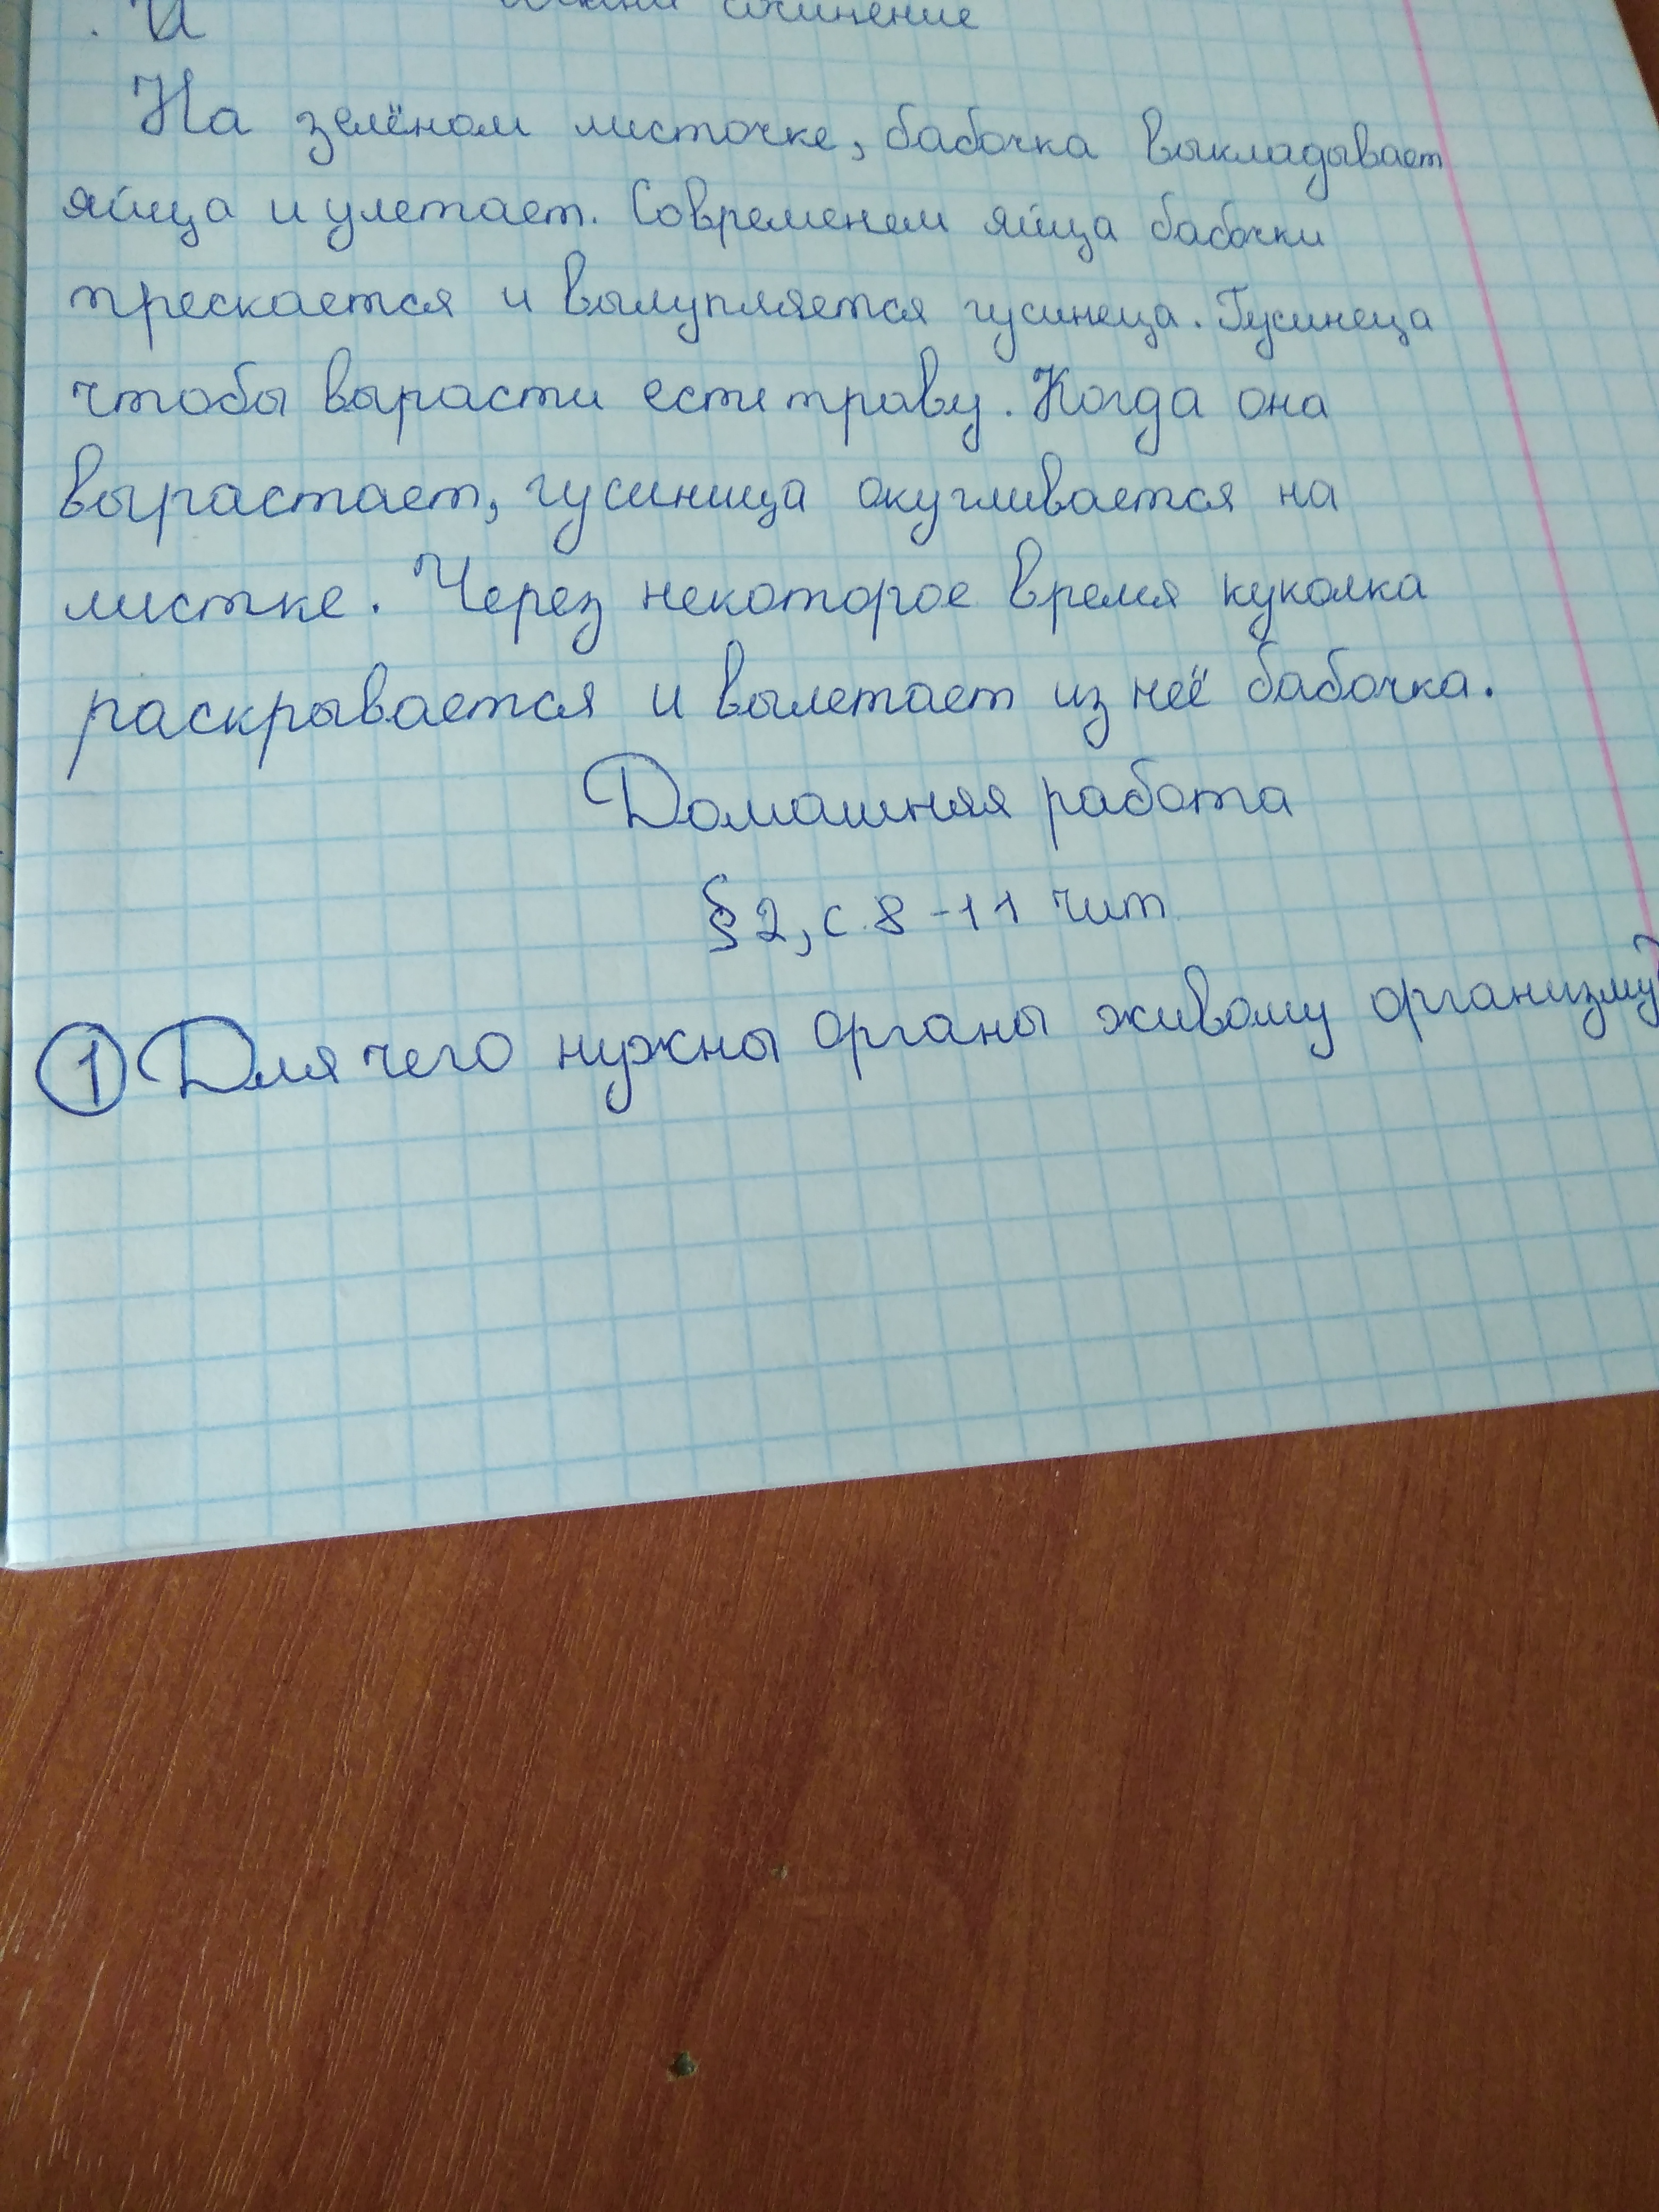 И сочинение
На зелёном листочке, бабочка выкладывает
яйца и улетает. Современем яйца бабочки
трескается и вылупляется гусинеца. Гусинеца
чтобы вырасти есть траву. Когда она
вырастает, гусиница окугливается на
листке. Через некоторое время куколка
раскрывается и вылетает из неё бабочка.
Домашняя работа
§2, с. 8-11 чит
1 Для чего нужны органы живому организму?